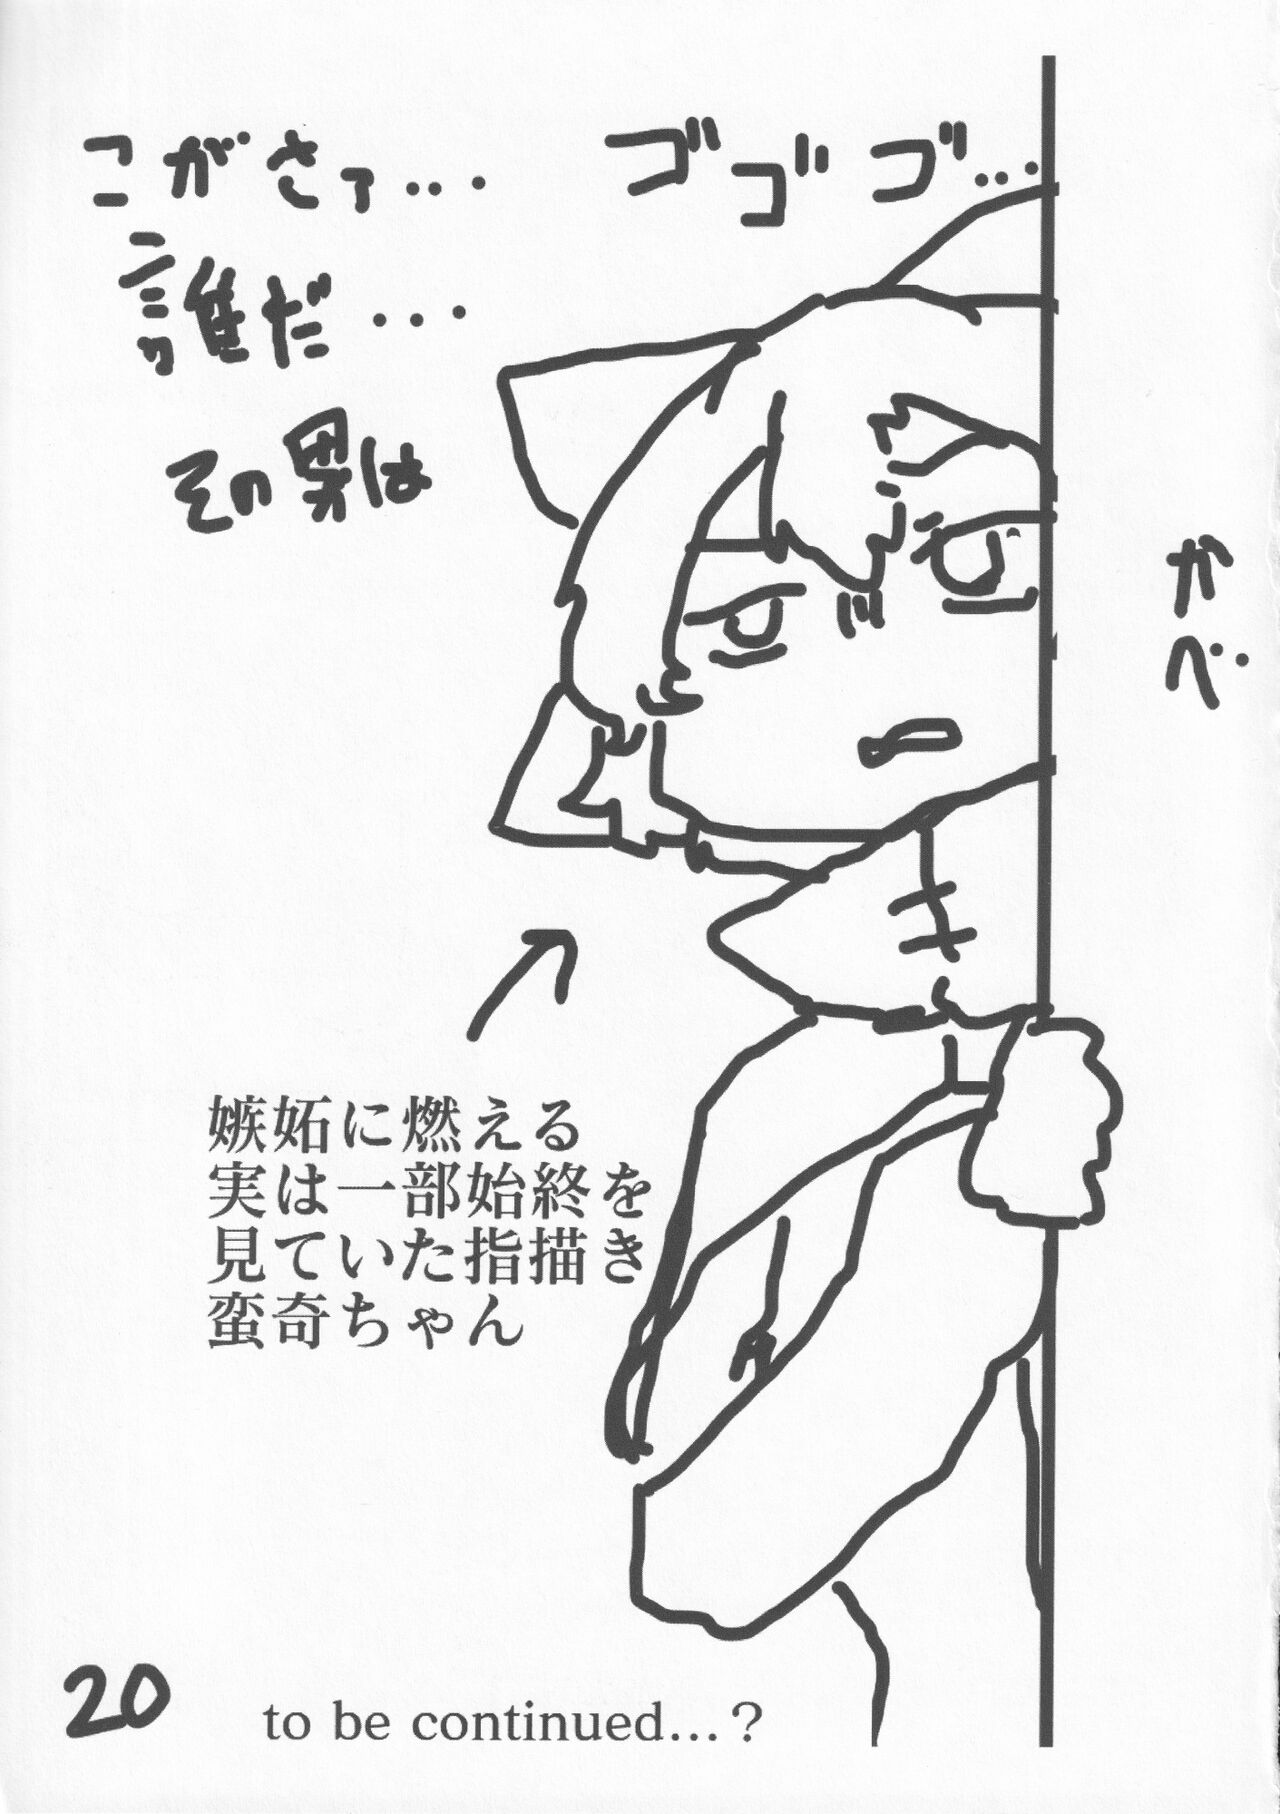 ゴゴゴ...
こがさァ...
誰だ...
その男は
かべ
嫉妬に燃える
実は一部始終を
見ていた指描き
蛮奇ちゃん
20
to be continued...?